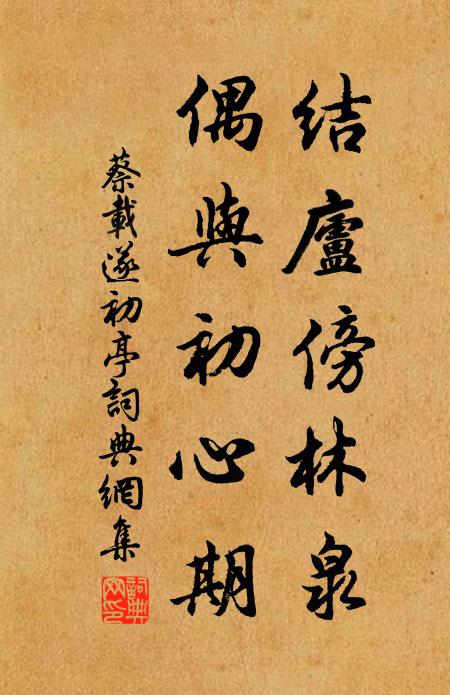 結廬傍林泉
偶與初心期
蔡載遂初亭詞典網集
詞典网印